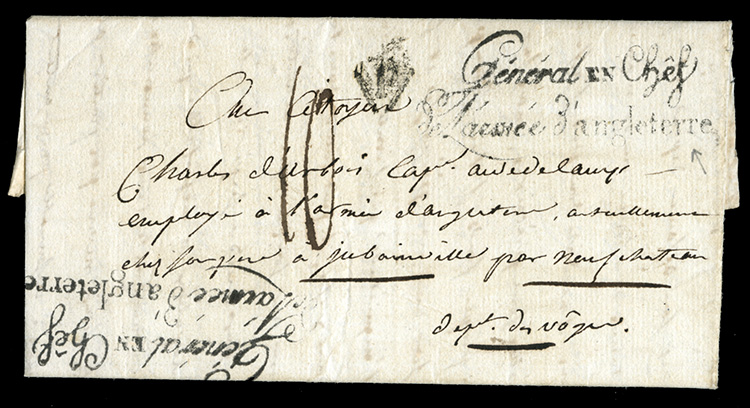 Général EN Chêf
de l'armée d'angleterre
Au Citoyen
10
Charles d'urbois Capne. aide de camp
employé à l'armée d'angleterre, actuellement
chez son pere à jubainville par neufchateau
dept. des vôges.
Général EN Chêf
de l'armée d'angleterre